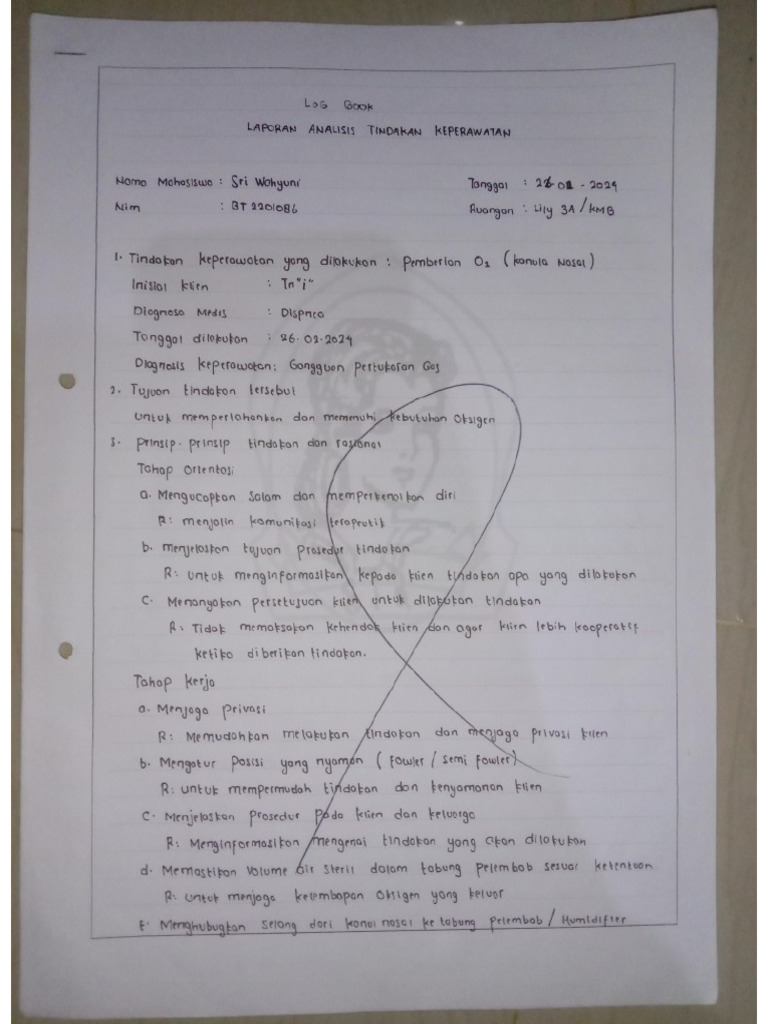 LOG BOOK
LAPORAN ANALISIS TINDAKAN KEPERAWATAN
Nama Mahasiswa : Sri Wahyuni
Tanggal : 26-02-2024
Nim : BT 2201086
Ruangan : Lily 3A / KMB
1. Tindakan keperawatan yang dilakukan : Pemberian O2 (kanula Nasal)
Inisial klien : Tn "i"
Diagnosa Medis : Dispnea
Tanggal dilakukan : 26.02.2024
Diagnosis keperawatan: Gangguan Pertukaran Gas
2. Tujuan tindakan tersebut
untuk memperlahankan dan memenuhi kebutuhan Oksigen
3. prinsip-prinsip tindakan dan rasional
Tahap orientasi
a. Mengucapkan salam dan memperkenalkan diri
R: menjalin komunikasi terapeutik
b. menjelaskan tujuan prosedur tindakan
R: untuk menginformasikan kepada klien tindakan apa yang dilakukan
C. Menanyakan persetujuan klien untuk dilakukan tindakan
R: Tidak memaksakan kehendak klien dan agar klien lebih kooperatif
ketika diberikan tindakan.
Tahap kerja
a. Menjaga privasi
R: Memudahkan melakukan tindakan dan menjaga privasi klien
b. Mengatur posisi yang nyaman (fowler / semi fowler)
R: untuk mempermudah tindakan dan kenyamanan klien
C. Menjelaskan prosedur pada klien dan keluarga
R: Menginformasikan mengenai tindakan yang akan dilakukan
d. Memastikan volume air steril dalam tabung pelembab sesuai ketentuan
R: untuk menjaga kelembapan oksigen yang keluar
E. Menghubugkan selang dari kanol nasal ke tabung pelembab / Humidifier